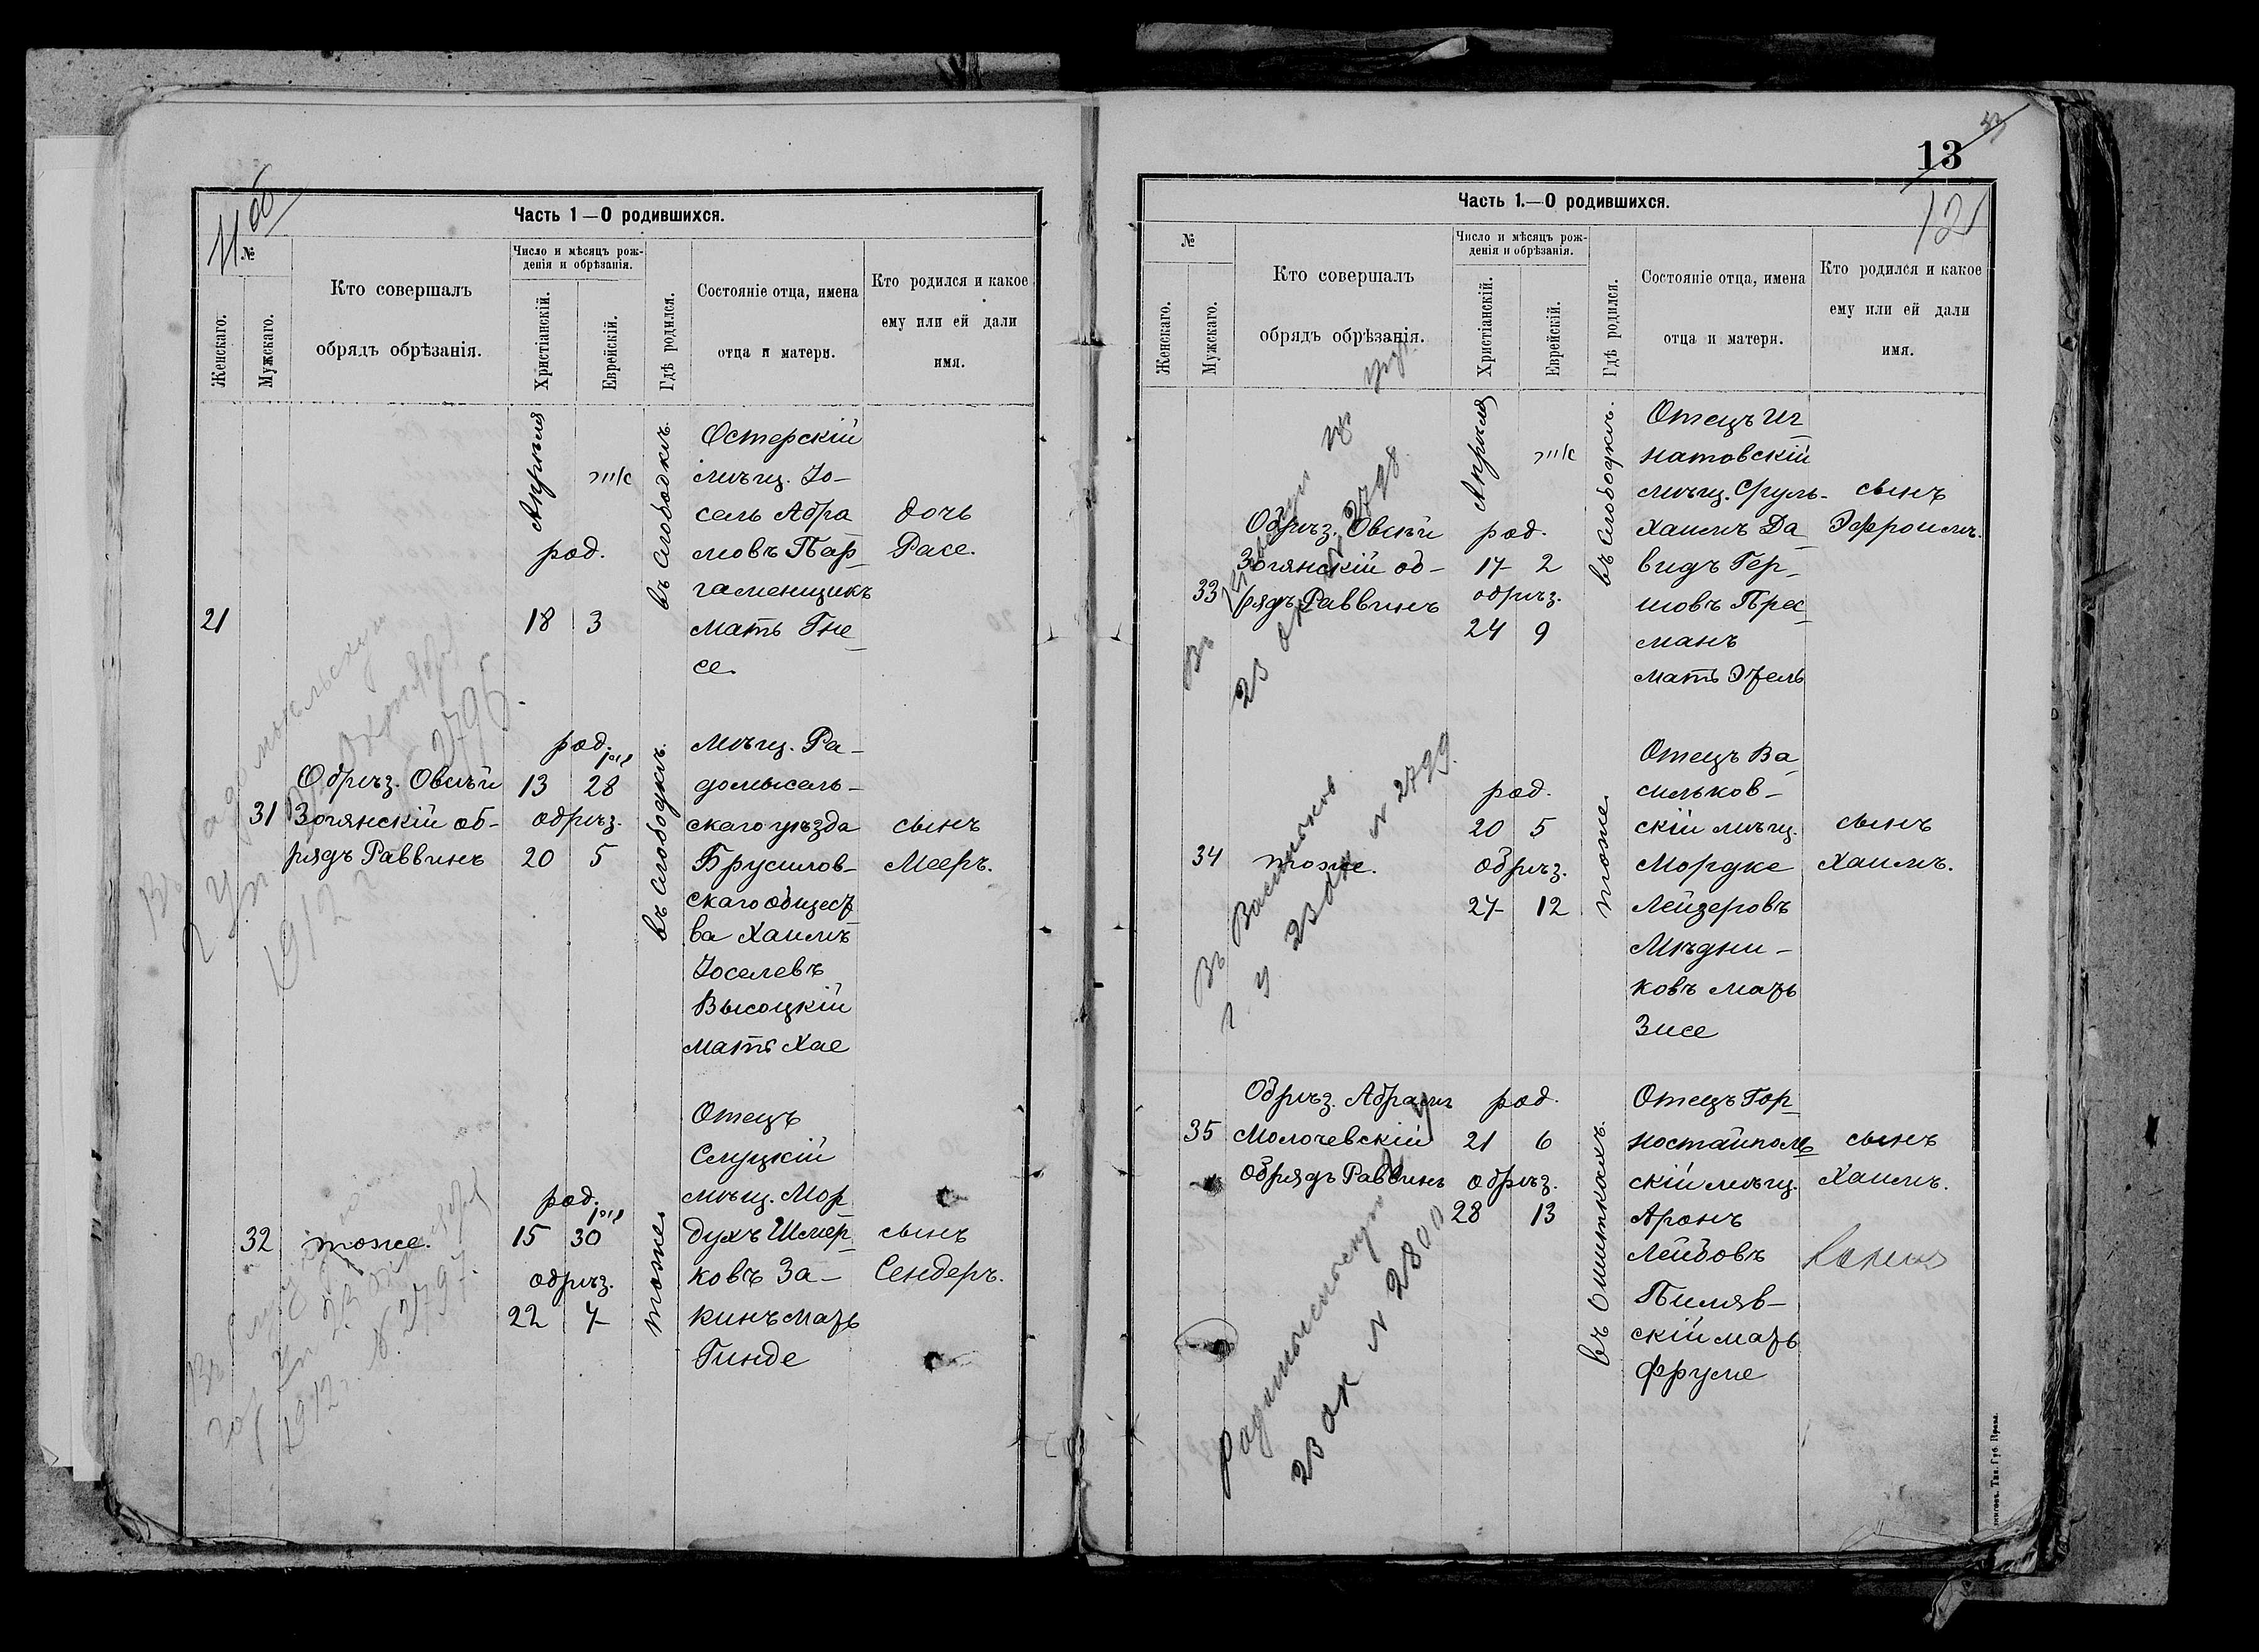 11 об
Часть 1—О родившихся.
№
Женскаго.
Мужскаго.
Кто совершалъ
обрядъ обрѣзанія.
Число и мѣсяцъ рож-
денія и обрѣзанія.
Христіанскій.
Еврейскій.
Гдѣ родился.
Состояніе отца, имена
отца и матери.
Кто родился и какое
ему или ей дали
имя.
21
Апрѣля
род.
18 3
въ Слободкѣ.
Остерскій
мѣщ. Іо-
сель Абра
мовъ Пар-
гаменщикъ
мать Гне-
се.
дочь
Расе.
31
Обрѣз. Овсѣй
Зогянскій об-
рядъ Раввинъ
род.
13 28
обрѣз.
20 5
въ Слободкѣ.
мѣщ. Ра-
домысль-
скаго уѣзда
Брусилов-
скаго общест
ва Хаимъ
Іоселевъ
Высоцкій
мать Хае
сынъ
Мееръ.
1912
2796.
32
тоже.
род.
15 30
обрѣз.
22 7
тоже.
Отецъ
Слуцкій
мѣщ. Мор
духъ Шмер-
ковъ За-
кинъ мать
Гинде
сынъ
Сендеръ.
1912 г. N. 2797.
13
12
Часть 1.—О родившихся.
№
Женскаго.
Мужскаго.
Кто совершалъ
обрядъ обрѣзанія.
Число и мѣсяцъ рож-
денія и обрѣзанія.
Христіанскій.
Еврейскій.
Гдѣ родился.
Состояніе отца, имена
отца и матери.
Кто родился и какое
ему или ей дали
имя.
33
Обрѣз. Овсѣй
Зогянскій об-
рядъ Раввинъ
Апрѣля
род.
17 2
обрѣз.
24 9
въ Слободкѣ.
Отецъ Иг
натовскій
мѣщ. Сруль-
Хаимъ Да
видъ Гер-
шовъ Прес
манъ
мать Этель
сынъ
Эфроимъ.
23 ок N 2798
34
тоже.
род.
20 5
обрѣз.
27 12
тоже.
Отецъ Ва
сильков-
скій мѣщ.
Мордке
Лейзеровъ
Мѣдни-
ковъ мать
Зисе
сынъ
Хаимъ.
23 ок N 2799.
35
Обрѣз. Абрамъ
Молочевскій
обрядъ Раввинъ
род.
21 6
обрѣз.
28 13
въ Олишкахъ.
Отецъ Гор
ностайполь
скій мѣщ.
Аронъ
Лейбовъ
Пиляв-
скій мать
Фруме
сынъ
Хаимъ.
23 ок N 2800